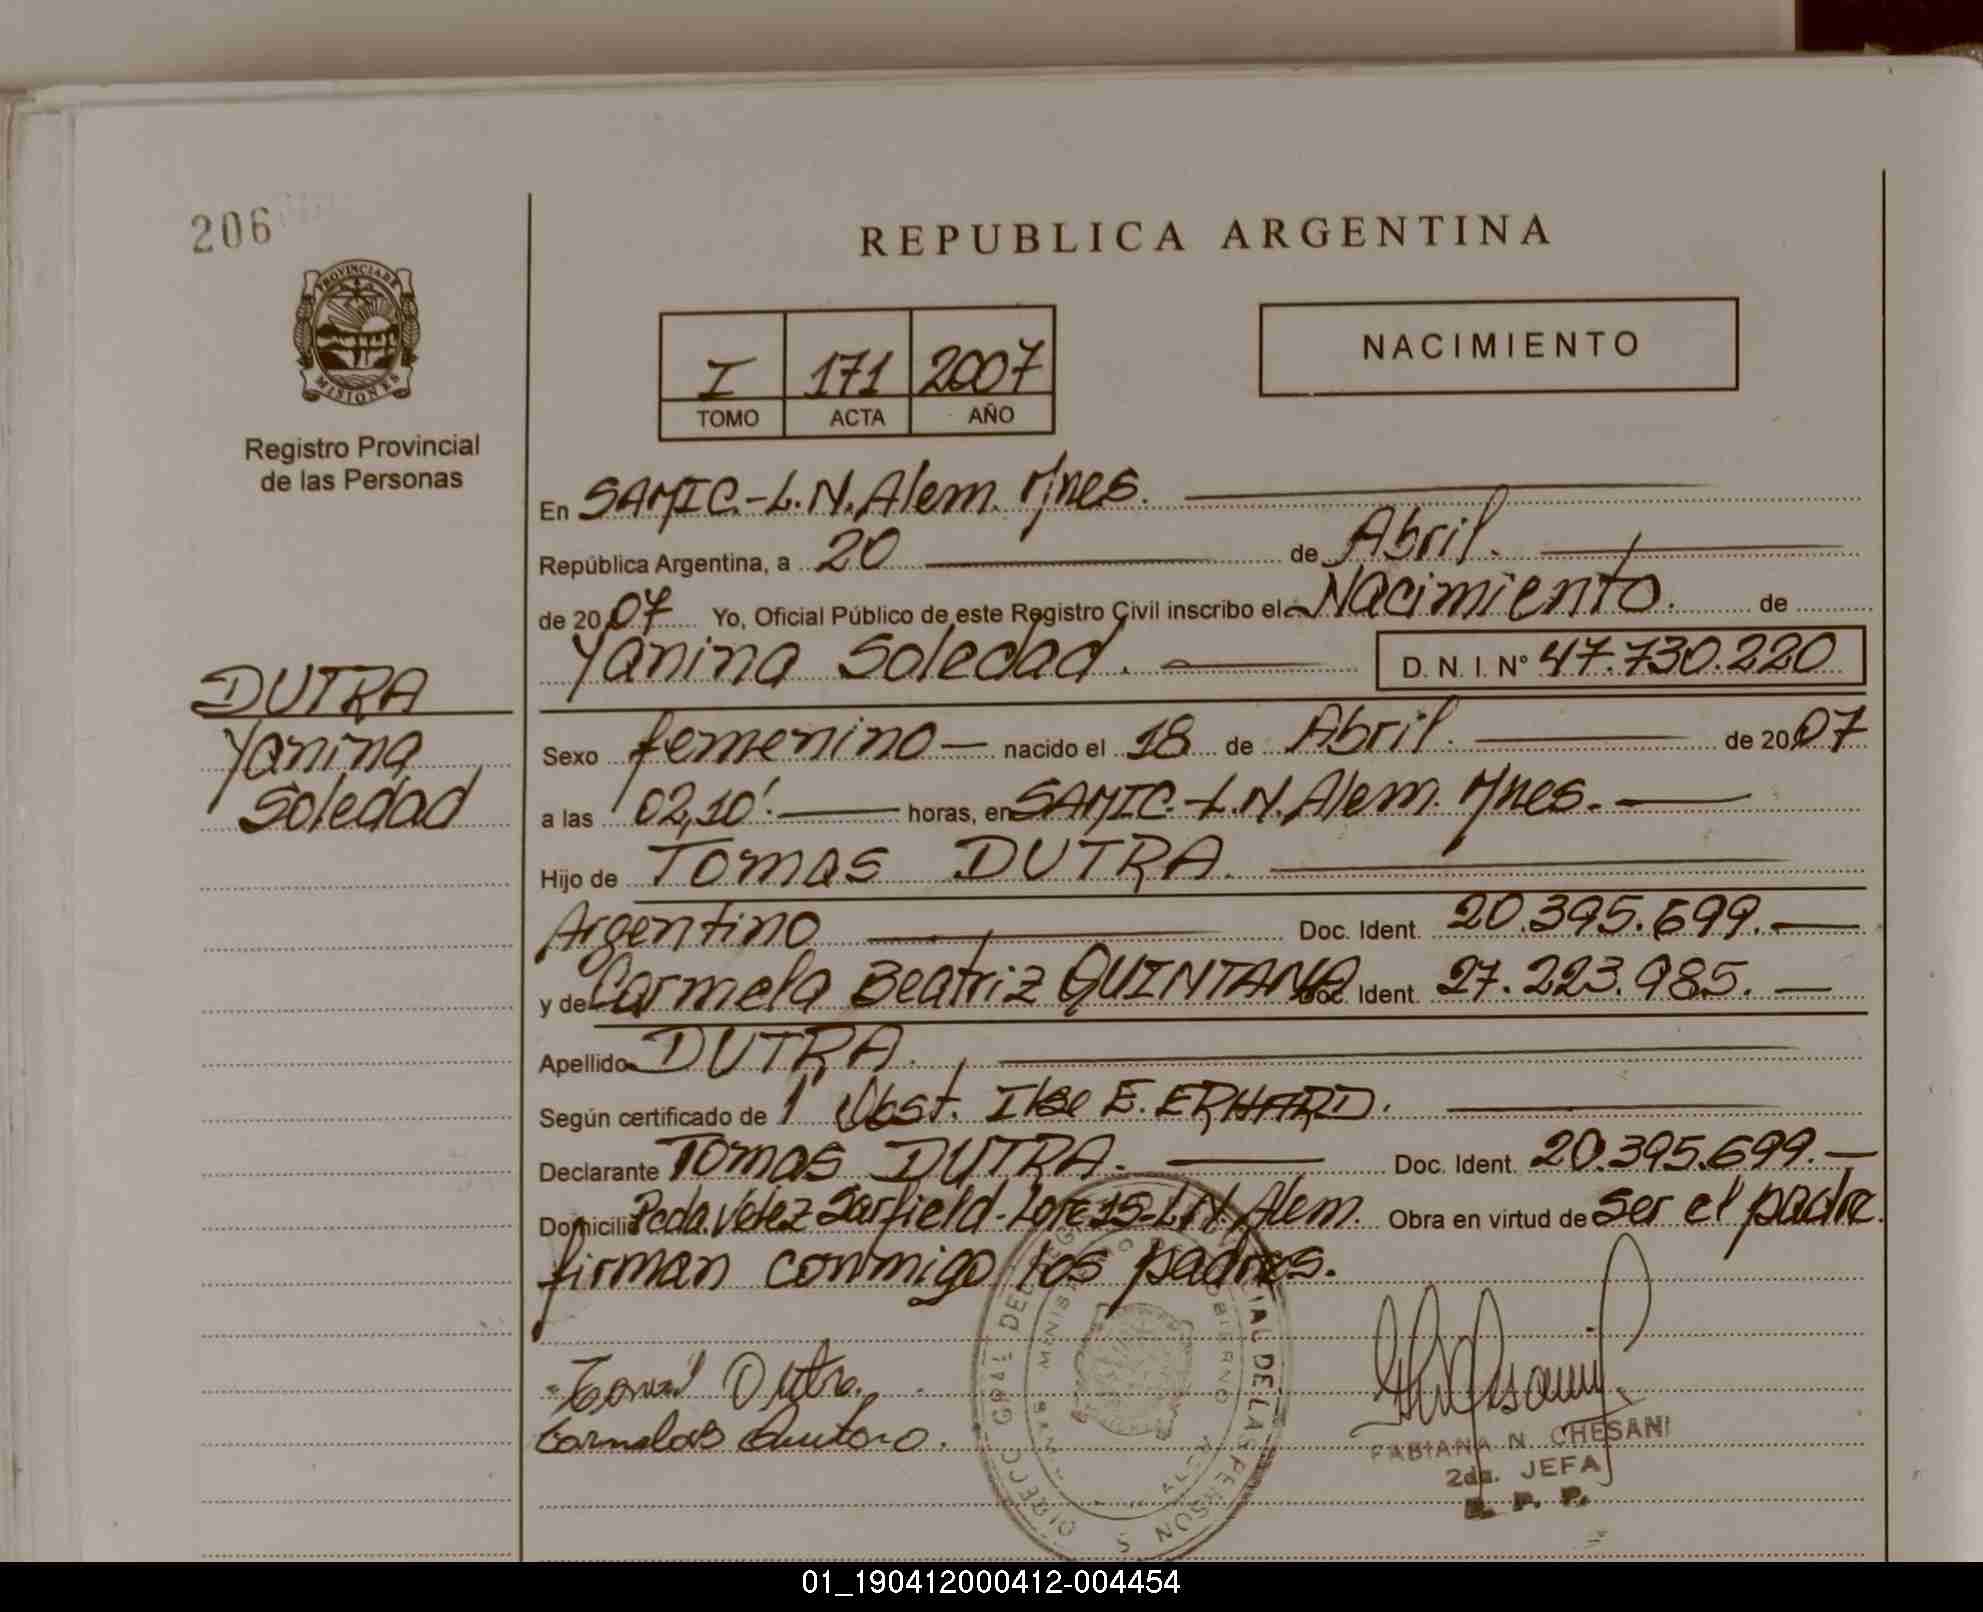 206
PROVINCIA DE
MISIONES
Registro Provincial
de las Personas
REPUBLICA ARGENTINA
I 171 2007
TOMO ACTA AÑO
NACIMIENTO
En SAMIC.-L.N.Alem. Mnes.
República Argentina, a 20 de Abril.
de 2007 Yo, Oficial Público de este Registro Civil inscribo el Nacimiento. de
Yanina Soledad. D. N. I. N° 47.730.220
DUTRA
Yanina
Soledad
Sexo femenino nacido el 18 de Abril. de 2007
a las 02,10'. horas, en SAMIC.-L.N.Alem. Mnes.
Hijo de Tomas DUTRA.
Argentino Doc. Ident. 20.395.699.
y de Carmela Beatriz QUINTANA Doc. Ident. 27.223.985.
Apellido DUTRA.
Según certificado de Obst. Ilse E. ERHARD.
Declarante Tomas DUTRA. Doc. Ident. 20.395.699.
Domicilio Pcda. Velez Sarfield-Lote 15-L.N.Alem. Obra en virtud de ser el padre.
firman conmigo los padres.
FABIANA N. CHESANI
2da. JEFA
R. P. P.
01_190412000412-004454